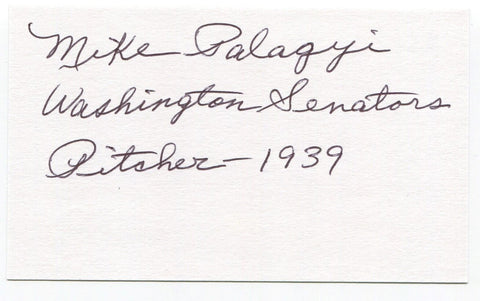 Mike Palagyi
Washington Senators
Pitcher - 1939